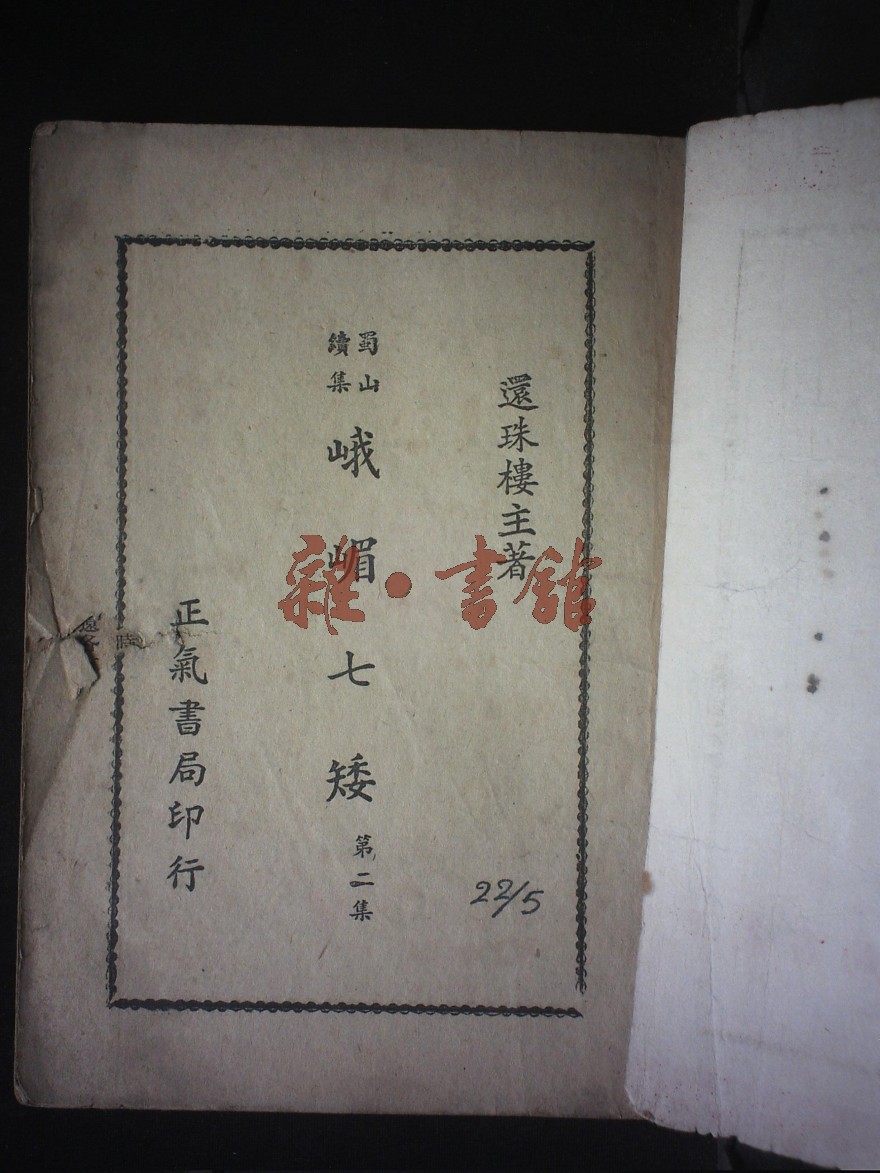 還珠樓主著
蜀山
續集
峨嵋七矮
第二集
正氣書局印行
22/5
雜·書館